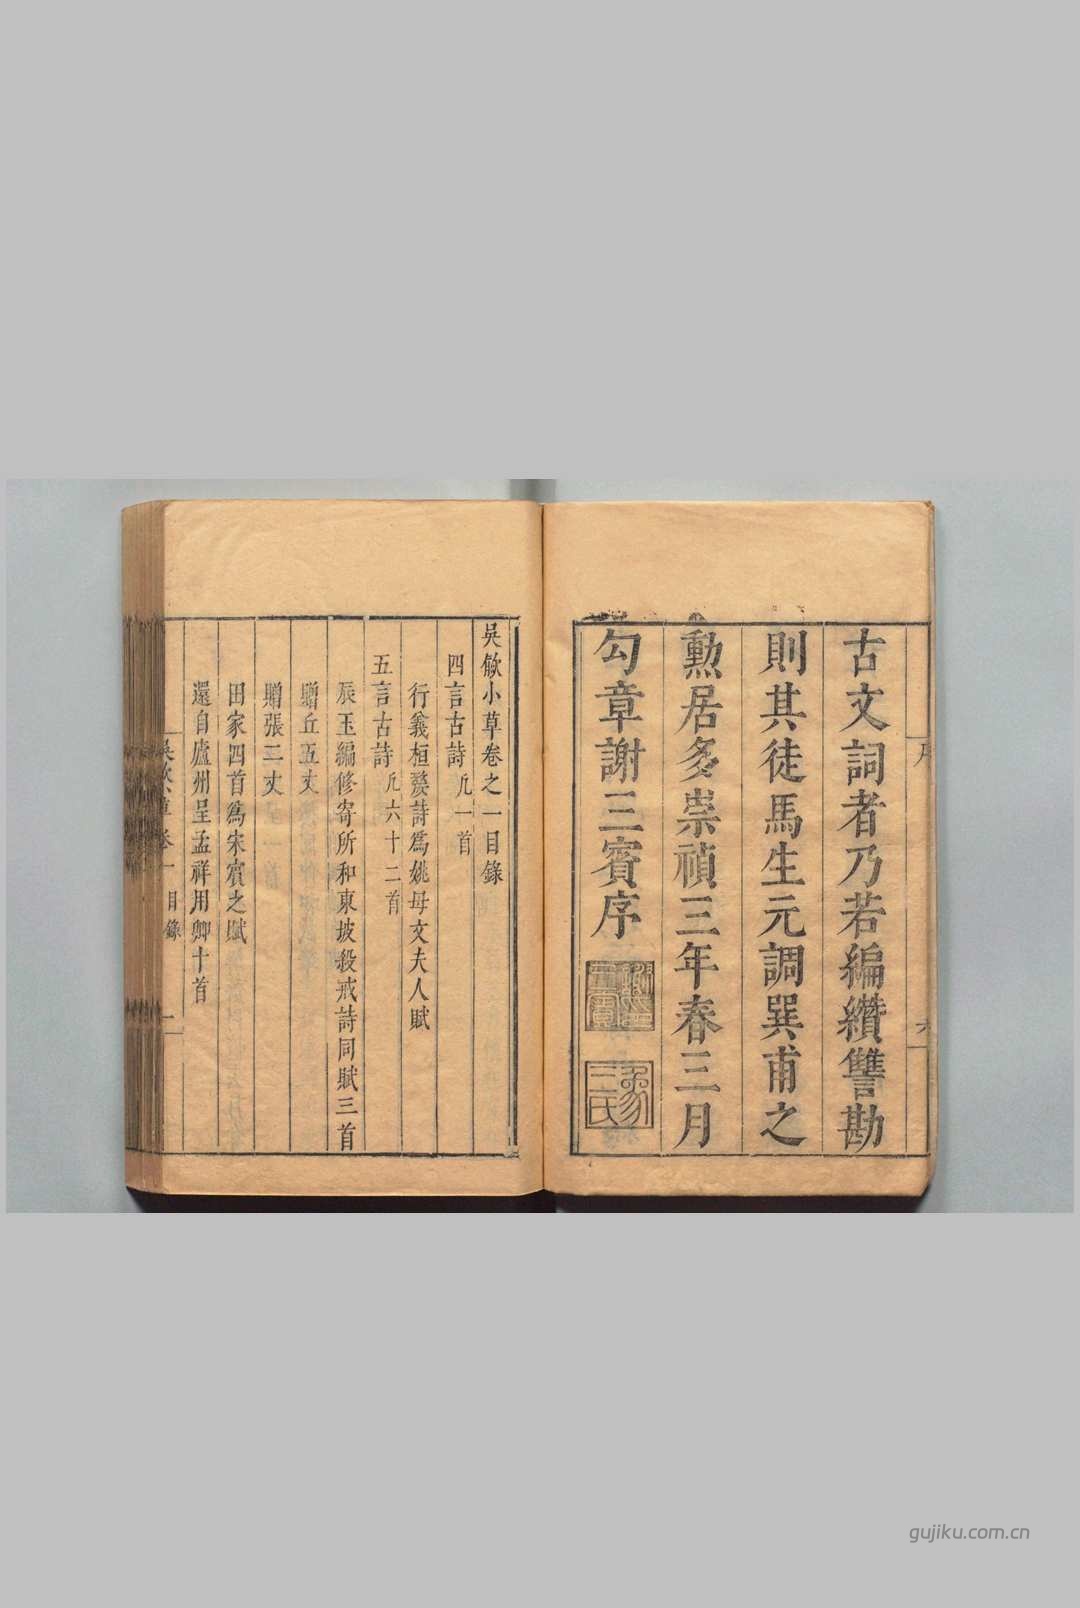 古文詞者乃若編纘讐勘
則其徒馬生元調巽甫之
勲居多崇禎三年春三月
勾章謝三賓序
序
六
吳歈小草卷之一目錄
四言古詩 凢一首
行義桓嫠詩爲姚母文夫人賦
五言古詩 凢六十二首
辰玉編修寄所和東坡殺戒詩同賦三首
贈丘五丈
贈張二丈
田家四首爲宋賓之賦
還自廬州呈孟祥用卿十首
卷一 目錄 一
gujiku.com.cn